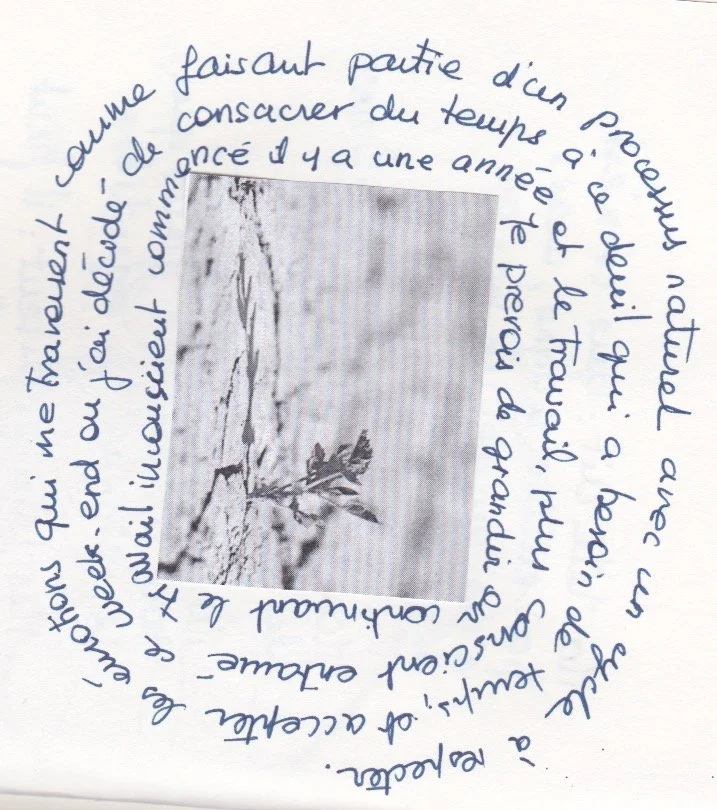 Je prévois de grandir en continuant le travail inconscient commencé il y a une année
et le travail, plus conscient entamé ce week-end où j'ai décidé de consacrer du temps à ce deuil qui a besoin de temps,
et accepter les émotions qui me traversent comme faisant partie d'un processus naturel avec un cycle à respecter.